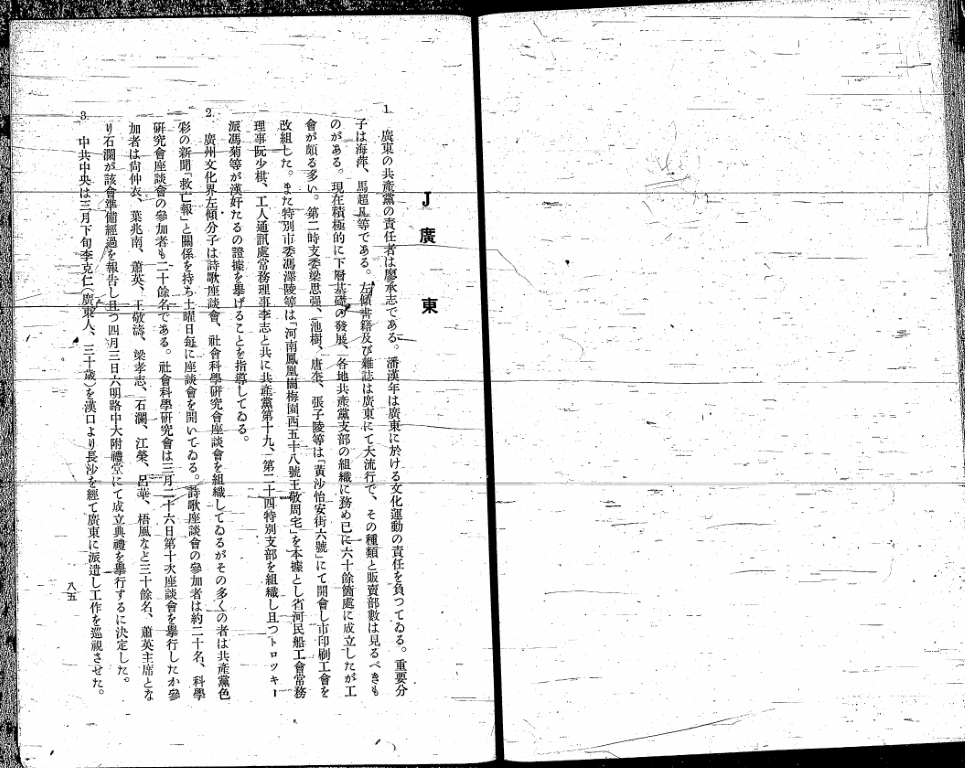 J 廣東
1. 廣東の共產黨の責任者は廖承志である。潘漢年は廣東に於ける文化運動の責任を負つてゐる。重要分
子は海萍、馬超凡等である。左傾書籍及び雜誌は廣東にて大流行で、その種類と販賣部數は見るべきも
のがある。現在積極的に下層基礎の發展、各地共產黨支部の組織に務め已に六十餘箇處に成立したが工
會が頗る多い。第二時支委梁思强、池樹、唐奎、張子陵等は「黃沙怡安街六號」にて開會し市印刷工會を
改組した。また特別市委馮澤陵等は「河南鳳凰崗梅園西五十八號王敬周宅」を本據とし省河民船工會常務
理事阮少棋、工人通訊處常務理事李志と共に共產黨第十九、第二十四特別支部を組織し且つトロツキー
派馮菊等が漢奸たるの證據を擧げることを指導してゐる。
2. 廣州文化界左傾分子は詩歌座談會、社會科學研究會座談會を組織してゐるがその多くの者は共產黨色
彩の新聞「救亡報」と關係を持ち土曜日每に座談會を開いてゐる。詩歌座談會の參加者は約二十名、科學
研究會座談會の參加者も二十餘名である。社會科學研究會は三月二十六日第十次座談會を擧行したが參
加者は尙仲衣、葉兆南、蕭英、王敬濤、梁孝志、石瀾、江榮、呂華、梧風など三十餘名、蕭英主席とな
り石瀾が該會準備經過を報告し且つ四月三日六明路中大附禮堂にて成立典禮を擧行するに決定した。
3. 中共中央は三月下旬李克仁（廣東人、三十歲）を漢口より長沙を經て廣東に派遣し工作を巡視させた。
八五